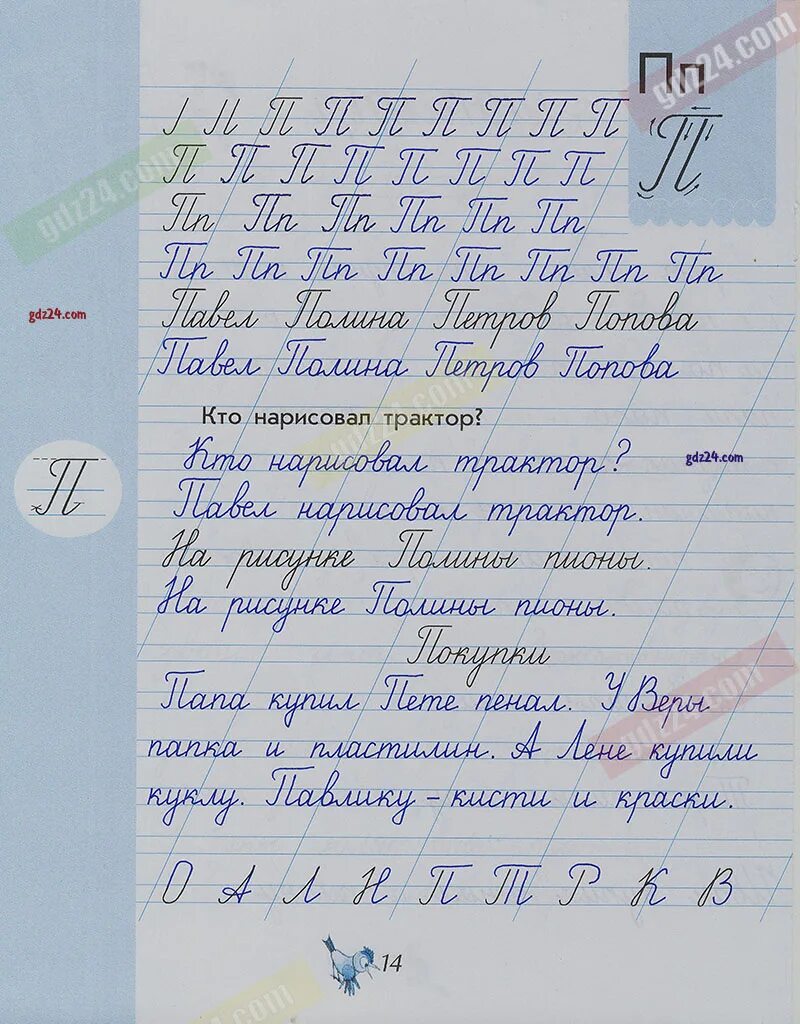 gdz24.com
Пп
П
П П П П П П П
П П П П П П П П
Пп Пп Пп Пп Пп Пп
gdz24.com
Пп Пп Пп Пп Пп Пп Пп Пп
gdz24.com
Павел Полина Петров Попова
Павел Полина Петров Попова
gdz24.com
Кто нарисовал трактор?
Кто нарисовал трактор?
gdz24.com
П
Павел нарисовал трактор.
На рисунке Полины пионы.
На рисунке Полины пионы.
Покупки
Папа купил Пете пенал. У Веры
gdz24.com
папка и пластилин. А Лене купили
куклу. Павлику – кисти и краски.
О А Л Н П Т Р К В
14